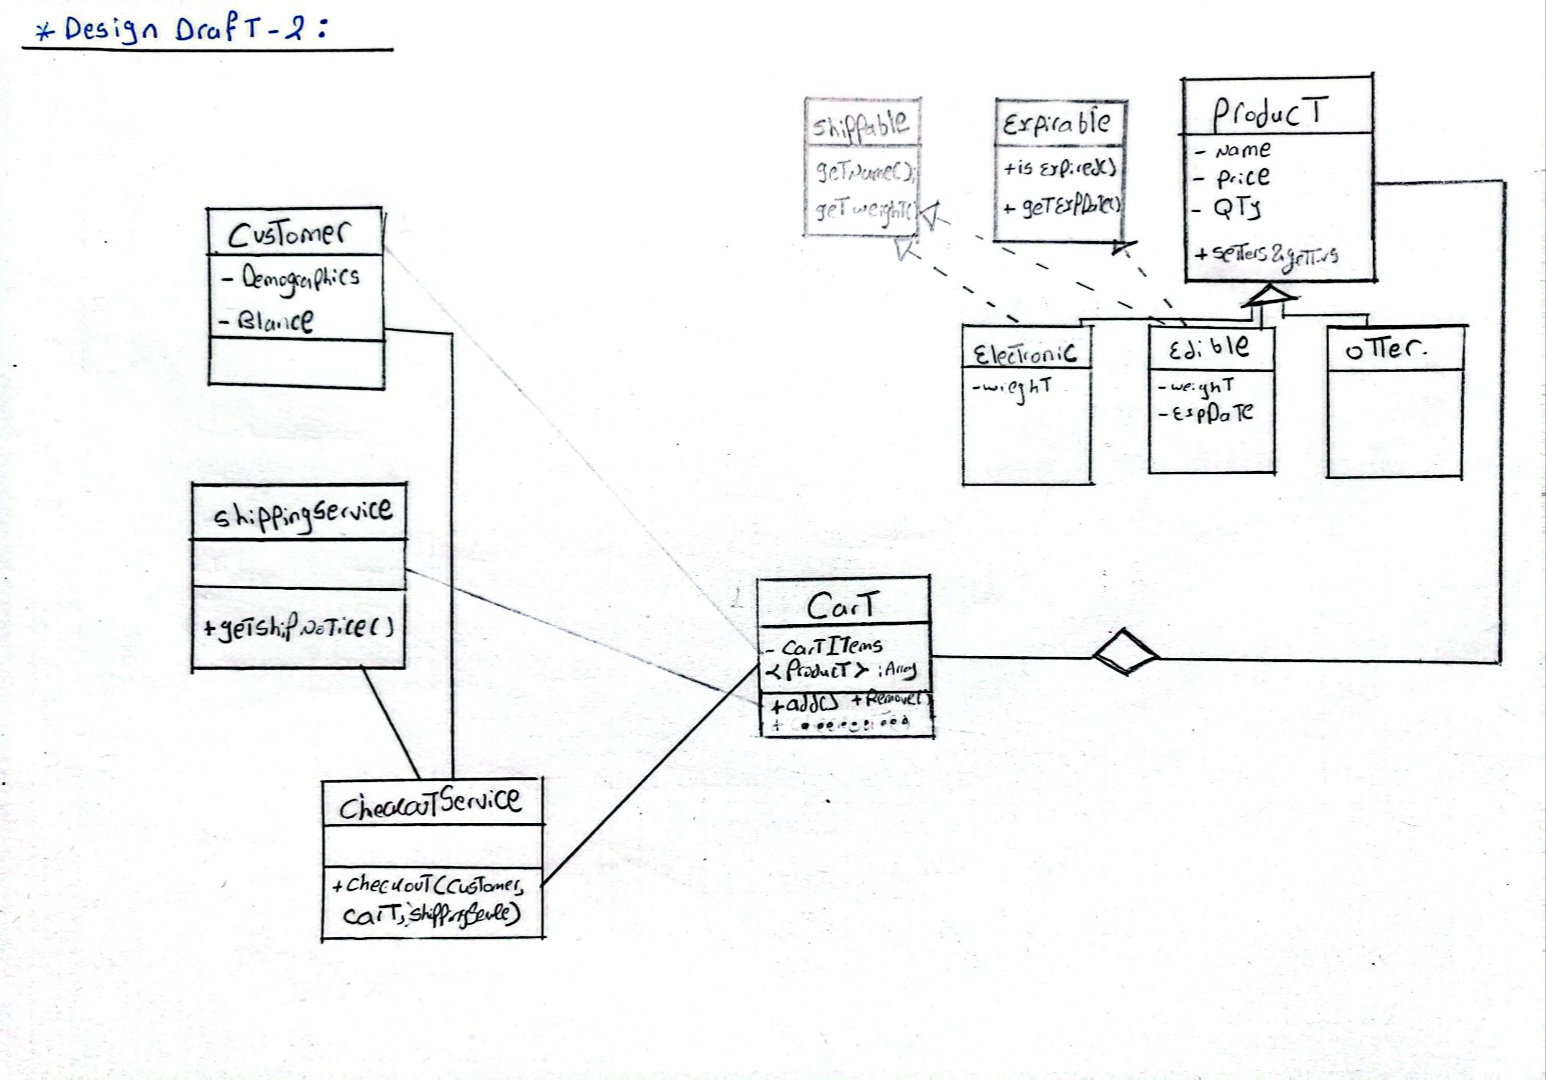 * Design Draft-2:
shippable
getName();
getweight()
Expirable
+is Expired()
+ getExpDate()
Product
- Name
- Price
- QTy
+ setters & getters
Customer
- Demographics
- Blance
Electronic
-wieghT
Edible
-weighT
-ExpDate
oTTer.
shippingService
+getshipNotice()
Cart
- CartItems
<Product> : Array
+add() +Remove()
CheckoutService
+checkout(customer,
cart,